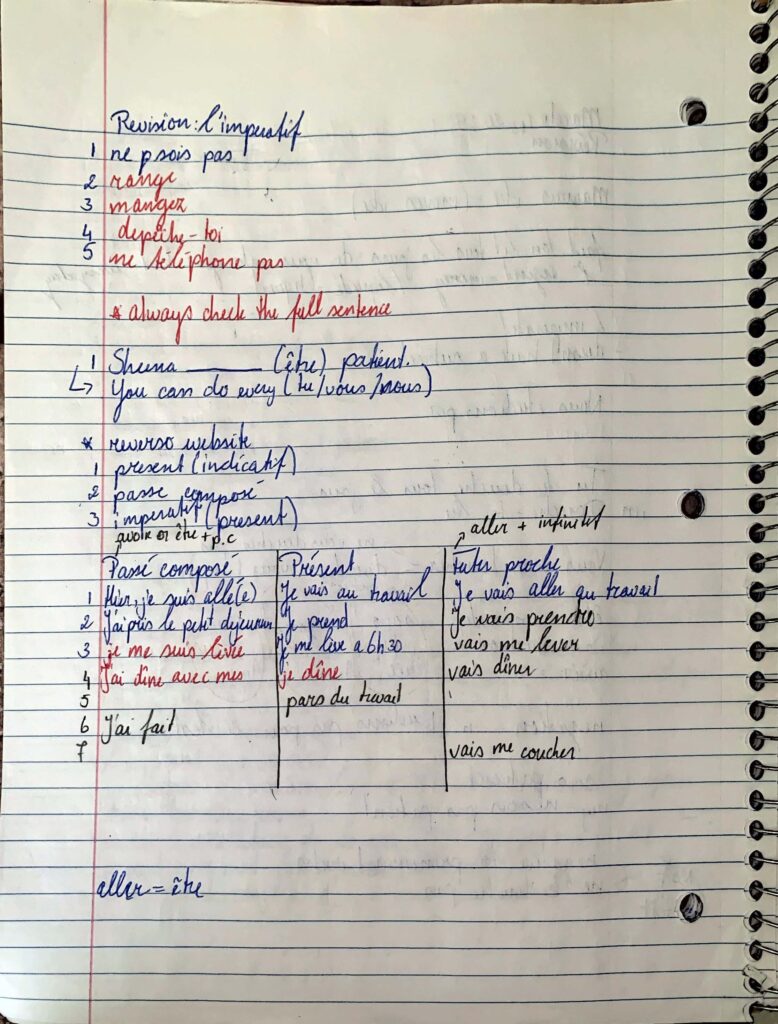 Revision: l'imperatif
1 ne psois pas
2 range
3 mangez
4 depêche-toi
5 ne téléphone pas
* always check the full sentence
1 Sheena ______ (être) patient.
↳ You can do every (tu/vous/nous)
* reverso website
1 present (indicatif)
2 passe composé
3 imperatif (present)
avoir or être + p.c
aller + infinitif
Passé composé Présent Futur proche
1 Hier, je suis allé(e) Je vais au travail Je vais aller au travail
2 J'ai pris le petit dejeuner Je prend Je vais prendre
3 je me suis livée Je me live a 6h30 vais me lever
4 J'ai dîne avec mes je dîne vais dîner
5 pars du travail
6 J'ai fait
7 vais me coucher
aller = être